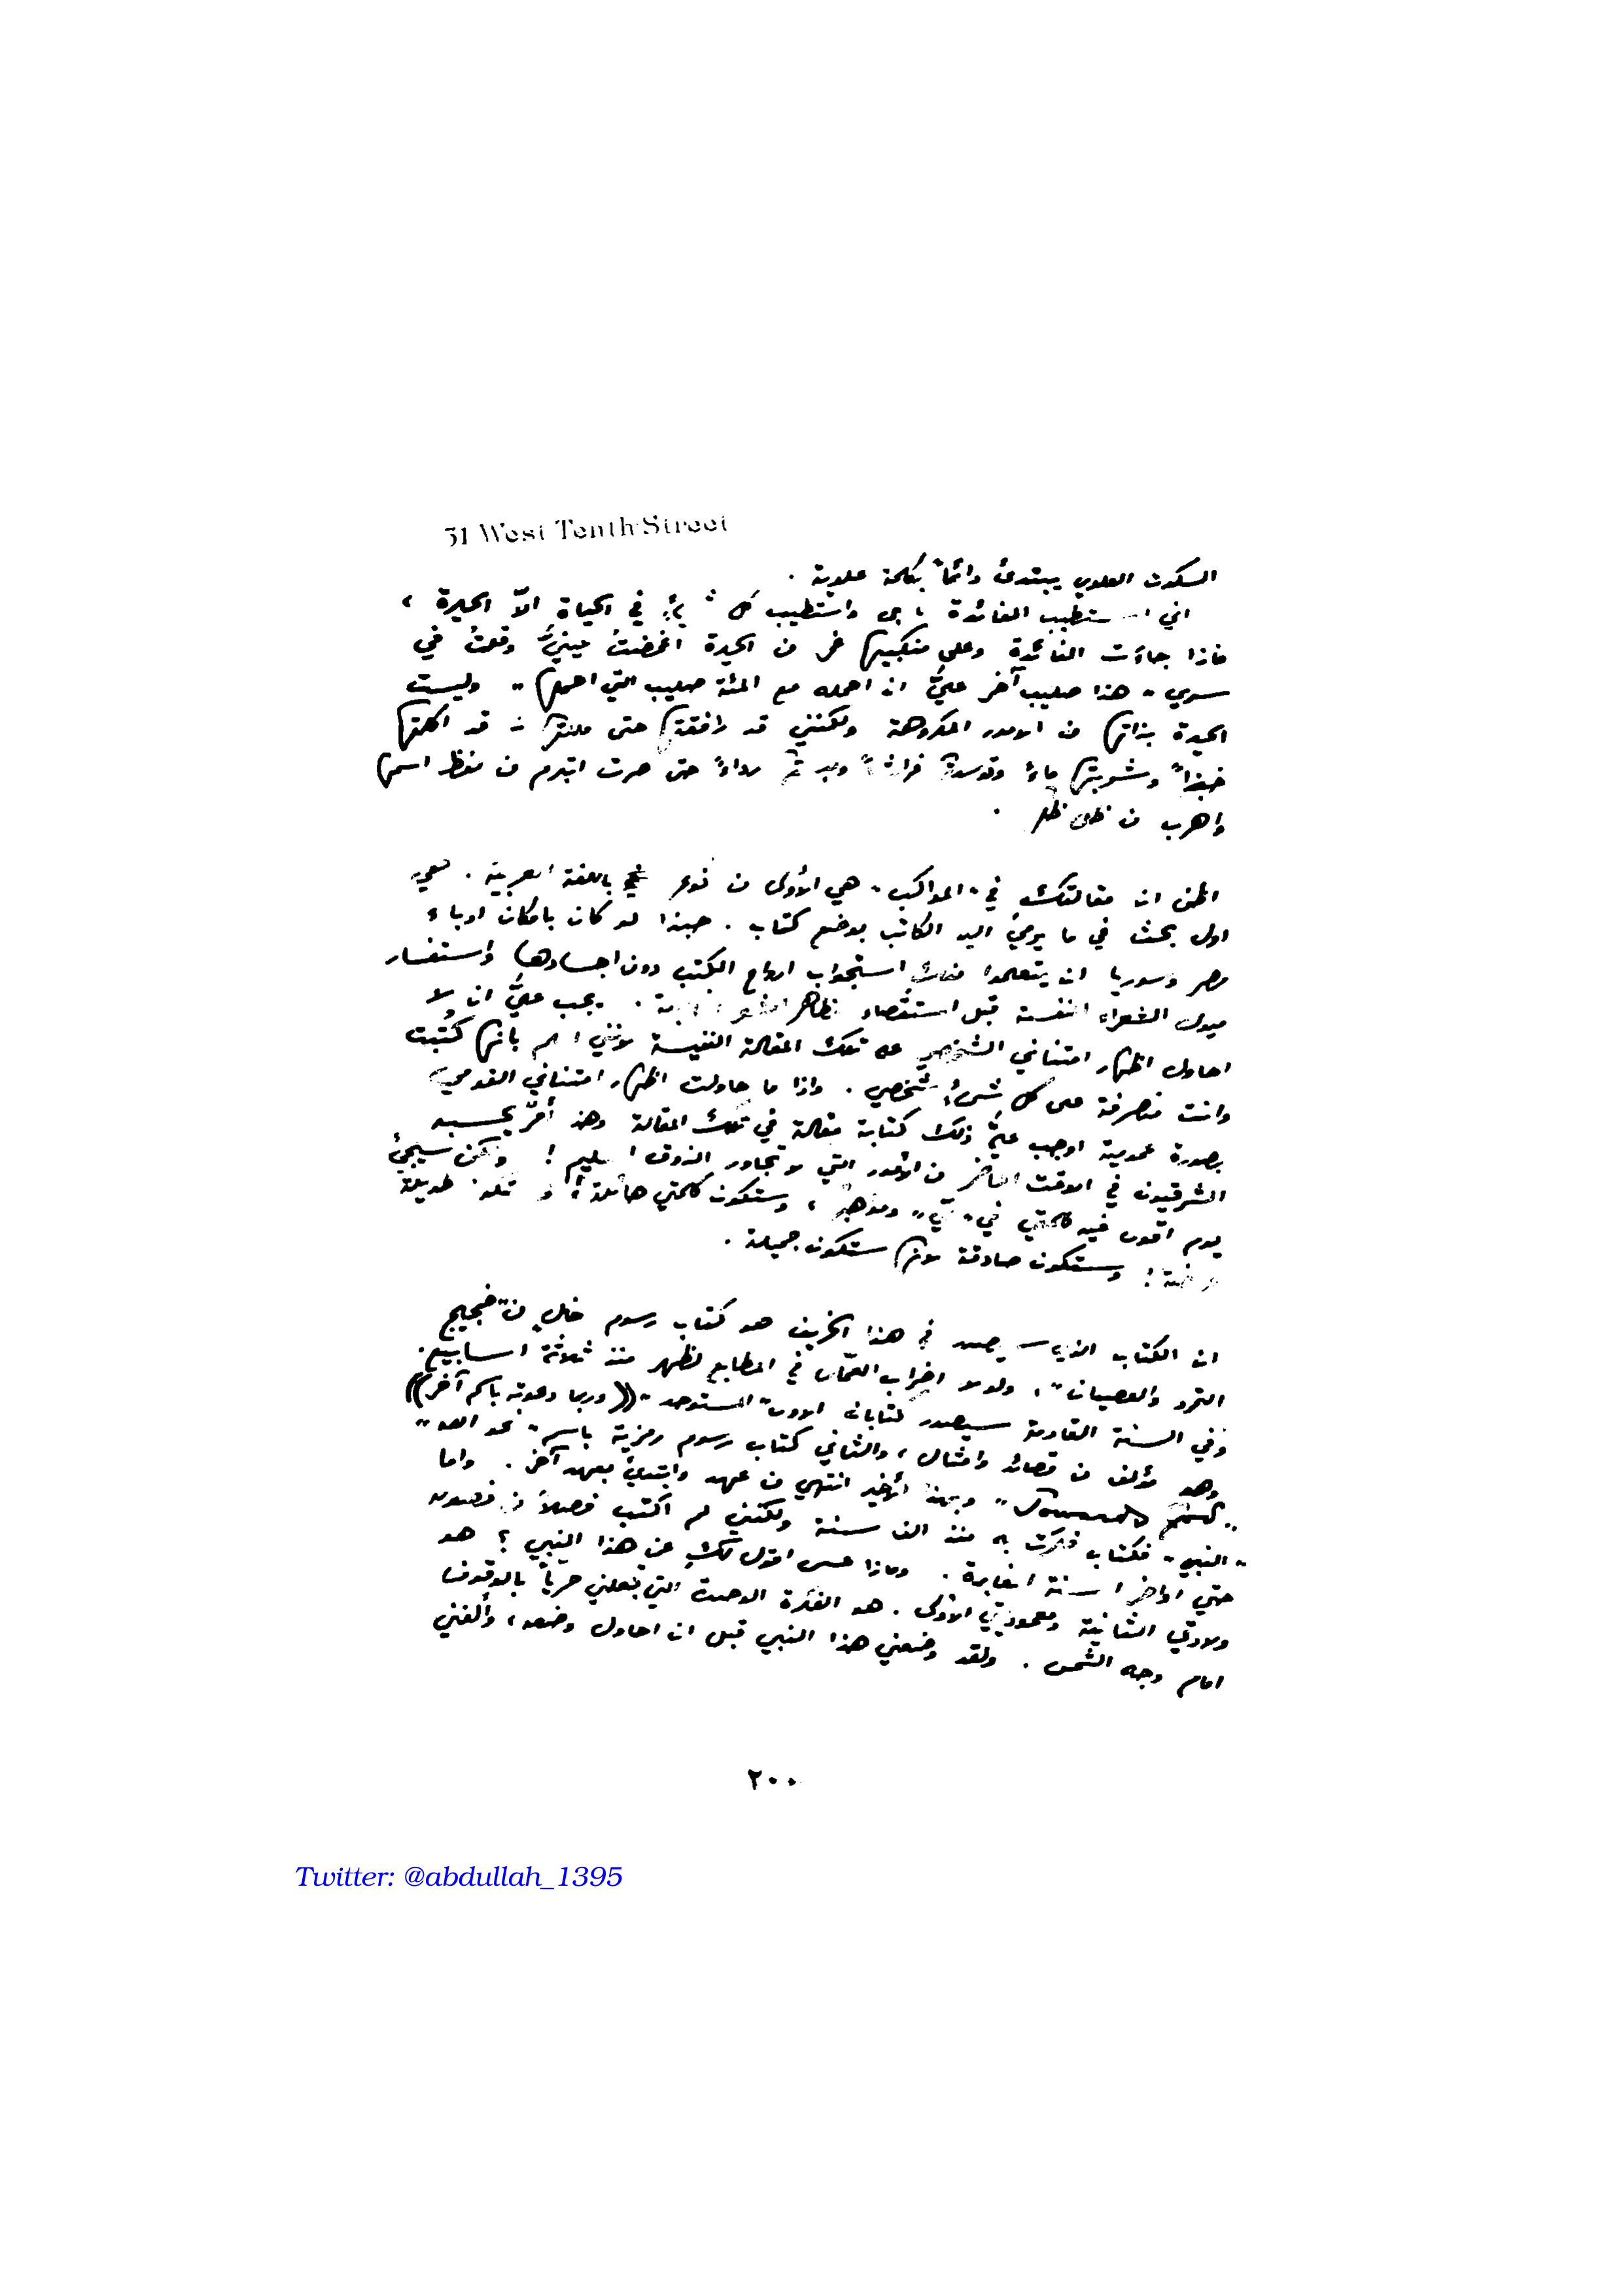 51 West Tenth Street
السكوت العلوي يبتدئ دائماً بكلمة علوية .
اني استطيب الفائدة واستطيب كل شيء في الحياة الاّ الحيرة ،
فاذا جاءت الفائدة وعلى منكبيها من الحيرة اغمضتُ عينيَّ وقلتُ في
سري " هذا صليب آخر عليَّ ان احمله مع المئة صليب التي احملها " وليست
الحيرة بذاتها من الامور المكروهة ولكنني قد رافقتها حتى مللتها - قد اكلتها
خبزاً وشربتها ماءً وتوسدتها فراشاً ولبستها رداءً حتى صرت اتبرم من لفظ اسمها
واهرب من ظل ظلها .
اظن ان مقالتكِ في " المواكب " هي الأولى من نوعها باللغة العربية . فهي
اول بحث في ما يرمي اليه الكاتب بوضع كتاب . حبذا لو كان بامكان ادباء
مصر وسوريا ان يتعلموا منكِ استجواب ارواح الكتب دون اجسادها واستفسار
ميول الشعراء النفسية قبل استقصاء مظاهر الشعر . يجب عليَّ ان لا
احاول اظهار امتناني الشخصي على تلك المقالة النفيسة لانني اعلم بانها كُتبت
وانتِ منصرفة عن كل شيءٍ شخصي . واذا ما حاولت اظهار امتناني القومي
بصورة عمومية اوجب عليّ ذلك كتابة مقالة في تلك المقالة وهذا أمرٌ يحسبه
الشرقيون في الوقت الحاضر من الأمور التي لا تجاور الذوق السليم ! ولكن سيجيءُ
يوم اقول فيه كلمتي في " ميّ " ومواهبها ، وستكون كلمتي هائلة ! وستكون طويلة
عريضة ! وستكون صادقة لانها ستكون جميلة .
ان الكتاب الذي سيصدر في هذا الخريف هو كتاب رسوم خالٍ من " ضجيج
التمرد والعصيان " ، ولولا اضراب العمّال في المطابع لظهر منذ ثلاثة اسابيع .
وفي السنة القادمة سيصدر كتابان الاول " المستوحد " (( وربما دعوته باسم آخر ))
وهو مؤلف من قصائد وامثال ، والثاني كتاب رسوم رمزية باسم " نحو الله "
" Towards God " وبهذا الأخير انتهي من عهد وابتدئ بعهد آخر . واما
" النبي " فكتاب فكرت به منذ الف سنة ولكنني لم اكتب فصلاً من فصوله
حتى اواخر السنة الغابرة . وماذا عسى اقول لكِ عن هذا النبي ؟ هو
ولادتي الثانية ومعموديتي الأولى . هو الفكرة الوحيدة التي تجعلني حرياً بالوقوف
امام وجه الشمس . ولقد وضعني هذا النبي قبل ان احاول وضعه ، وألفني
٢٠٠
Twitter: @abdullah_1395